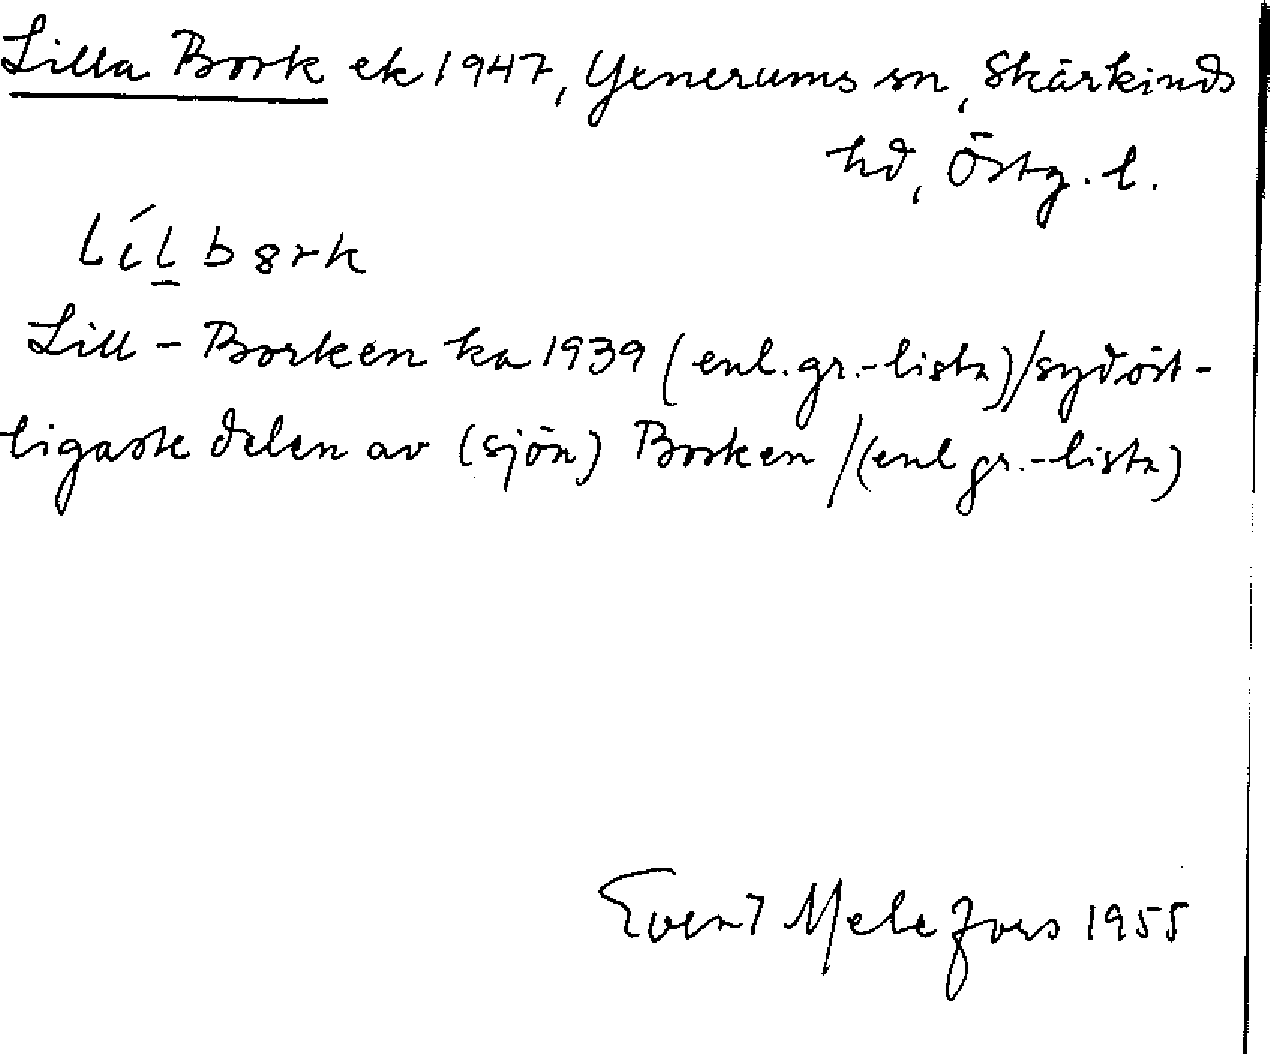 Lilla Bork ek 1947, Yxnerums sn, Skärkinds
hd, Östg. l.
Líl bork
Lill-Borken ka 1939 (enl. gr.-lista)/sydöst-
ligaste delen av (sjön) Borken/(enl gr.-lista)
Evert Melefors 1955